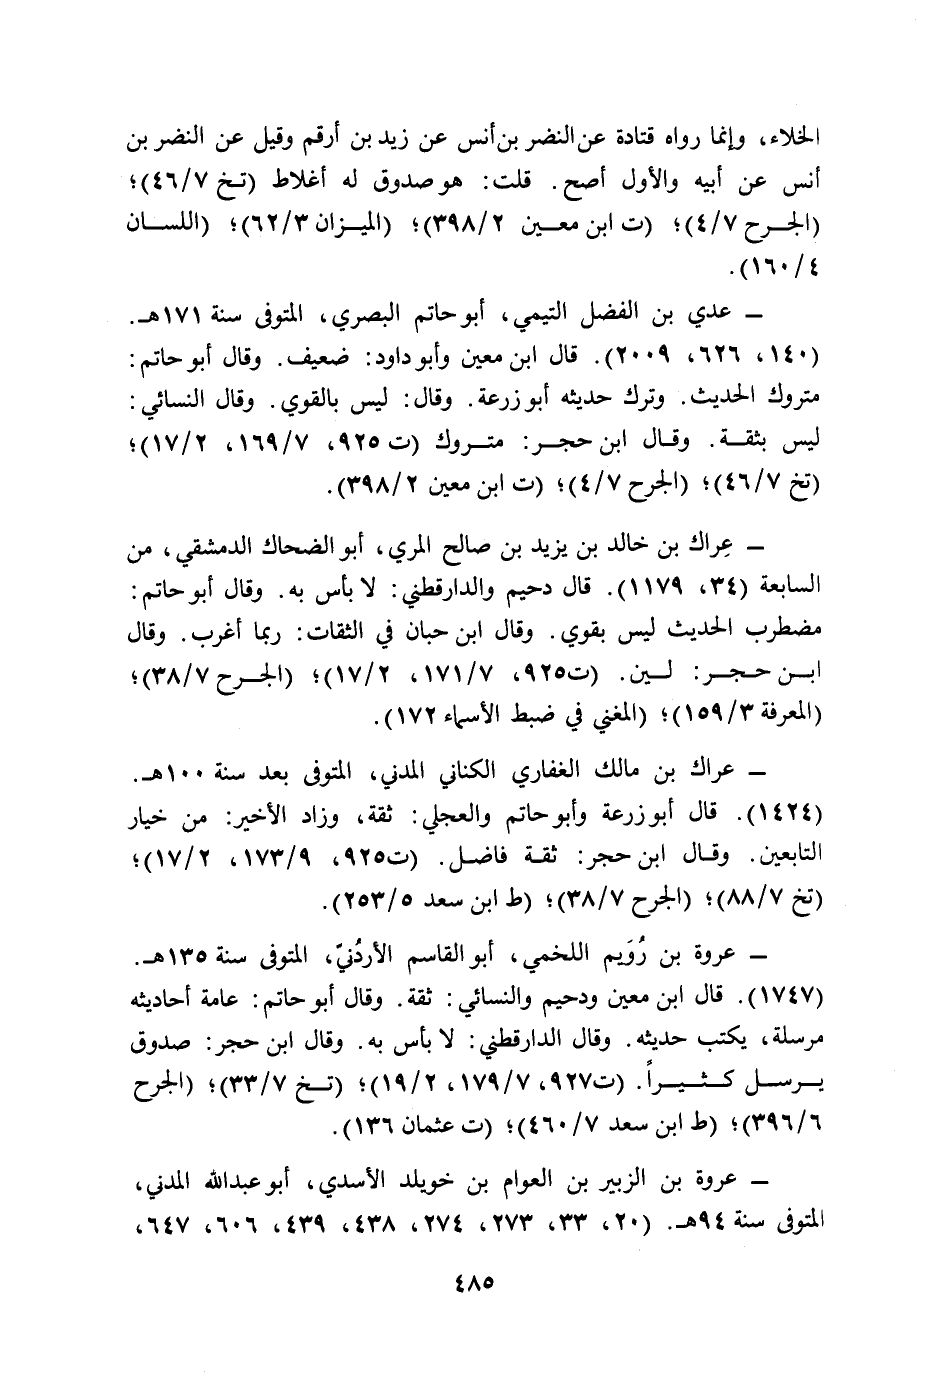 الخلاء، وإنما رواه قتادة عن النضر بن أنس عن زيد بن أرقم وقيل عن النضر بن
أنس عن أبيه والأول أصح. قلت: هو صدوق له أغلاط (تخ ٤٦/٧)؛
(الجرح ٤/٧)؛ (ت ابن معين ٣٩٨/٢)؛ (الميزان ٦٢/٣)؛ (اللسان
١٦٠/٤).
— عدي بن الفضل التيمي، أبو حاتم البصري، المتوفى سنة ١٧١هـ.
(١٤٠، ٦٢٦، ٢٠٠٩). قال ابن معين وأبو داود: ضعيف. وقال أبو حاتم:
متروك الحديث. وترك حديثه أبو زرعة. وقال: ليس بالقوي. وقال النسائي:
ليس بثقة. وقال ابن حجر: متروك (ت ٩٢٥، ١٦٩/٧، ١٧/٢)؛
(تخ ٤٦/٧)؛ (الجرح ٤/٧)؛ (ت ابن معين ٣٩٨/٢).
— عِراك بن خالد بن يزيد بن صالح المري، أبو الضحاك الدمشقي، من
السابعة (٣٤، ١١٧٩). قال دحيم والدارقطني: لا بأس به. وقال أبو حاتم:
مضطرب الحديث ليس بقوي. وقال ابن حبان في الثقات: ربما أغرب. وقال
ابن حجر: لين. (ت٩٢٥، ١٧١/٧، ١٧/٢)؛ (الجرح ٣٨/٧)؛
(المعرفة ١٥٩/٣)؛ (المغني في ضبط الأسماء ١٧٢).
— عراك بن مالك الغفاري الكناني المدني، المتوفى بعد سنة ١٠٠هـ.
(١٤٢٤). قال أبو زرعة وأبو حاتم والعجلي: ثقة، وزاد الأخير: من خيار
التابعين. وقال ابن حجر: ثقة فاضل. (ت٩٢٥، ١٧٣/٩، ١٧/٢)؛
(تخ ٨٨/٧)؛ (الجرح ٣٨/٧)؛ (ط ابن سعد ٢٥٣/٥).
— عروة بن رُوَيم اللخمي، أبو القاسم الأردُنيّ، المتوفى سنة ١٣٥هـ.
(١٧٤٧). قال ابن معين ودحيم والنسائي: ثقة. وقال أبو حاتم: عامة أحاديثه
مرسلة، يكتب حديثه. وقال الدارقطني: لا بأس به. وقال ابن حجر: صدوق
يرسل كثيراً. (ت٩٢٧، ١٧٩/٧، ١٩/٢)؛ (تخ ٣٣/٧)؛ (الجرح
٣٩٦/٦)؛ (ط ابن سعد ٤٦٠/٧)؛ (ت عثمان ١٣٦).
— عروة بن الزبير بن العوام بن خويلد الأسدي، أبو عبدالله المدني،
المتوفى سنة ٩٤هـ. (٢٠، ٣٣، ٢٧٣، ٢٧٤، ٤٣٨، ٤٣٩، ٦٠٦، ٦٤٧،
٤٨٥